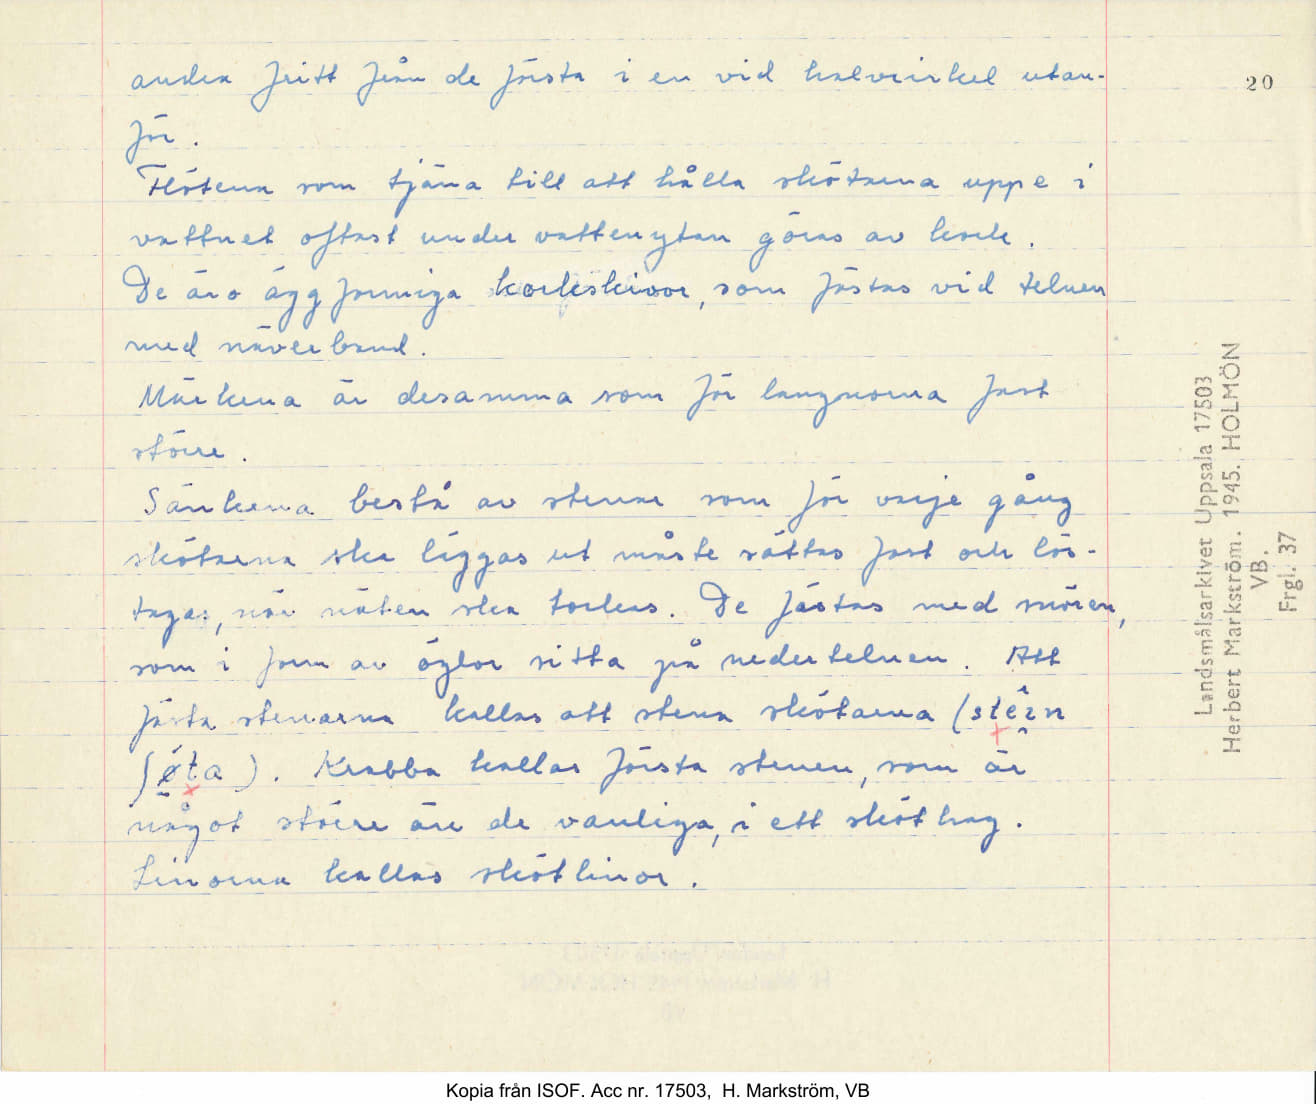 andra fritt från de första i en vid halvcirkel utan-
för.
20
Flötena som tjäna till att hålla skötarna uppe i
vattnet oftast under vattenytan göras av kork.
De äro äggformiga korkskivor, som fästas vid telnen
med näverband.
Märkena är desamma som för langnorna fast
större.
Sänkena bestå av stenar som för varje gång
skötarna ska läggas ut måste sättas fast och lös-
tagas, när näten ska torkas. De fästas med snören,
som i form av öglor sitta på nedertelnen. Att
fästa stenarna kallas att stena skötarna (
). Krabba kallas första stenen, som är
något större än de vanliga, i ett skötlag.
Linorna kallas skötlinor.
Landsmålsarkivet Uppsala 17503
Herbert Markström. 1945. HOLMÖN
VB.
Frgl. 37
Kopia från ISOF. Acc nr. 17503, H. Markström, VB